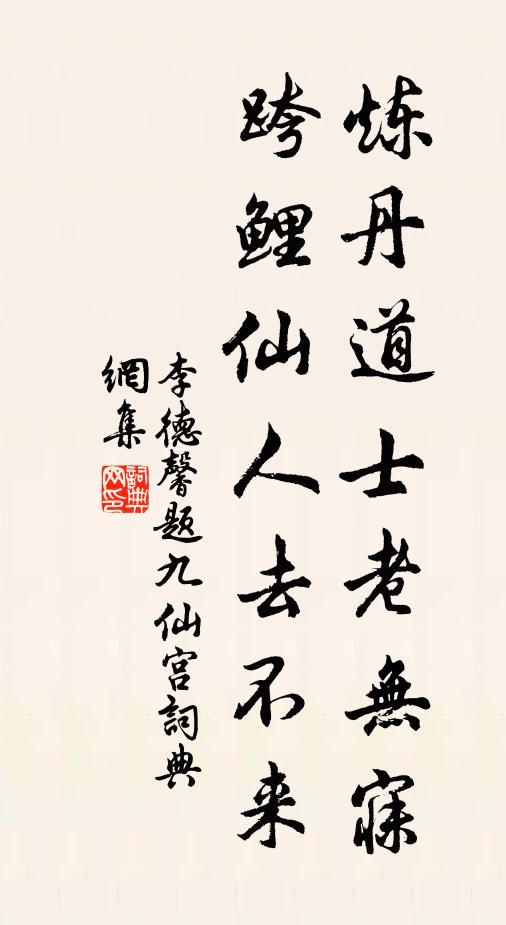 炼丹道士老無寐
跨鲤仙人去不来
李德馨题九仙宫詞典
網集
詞典網印